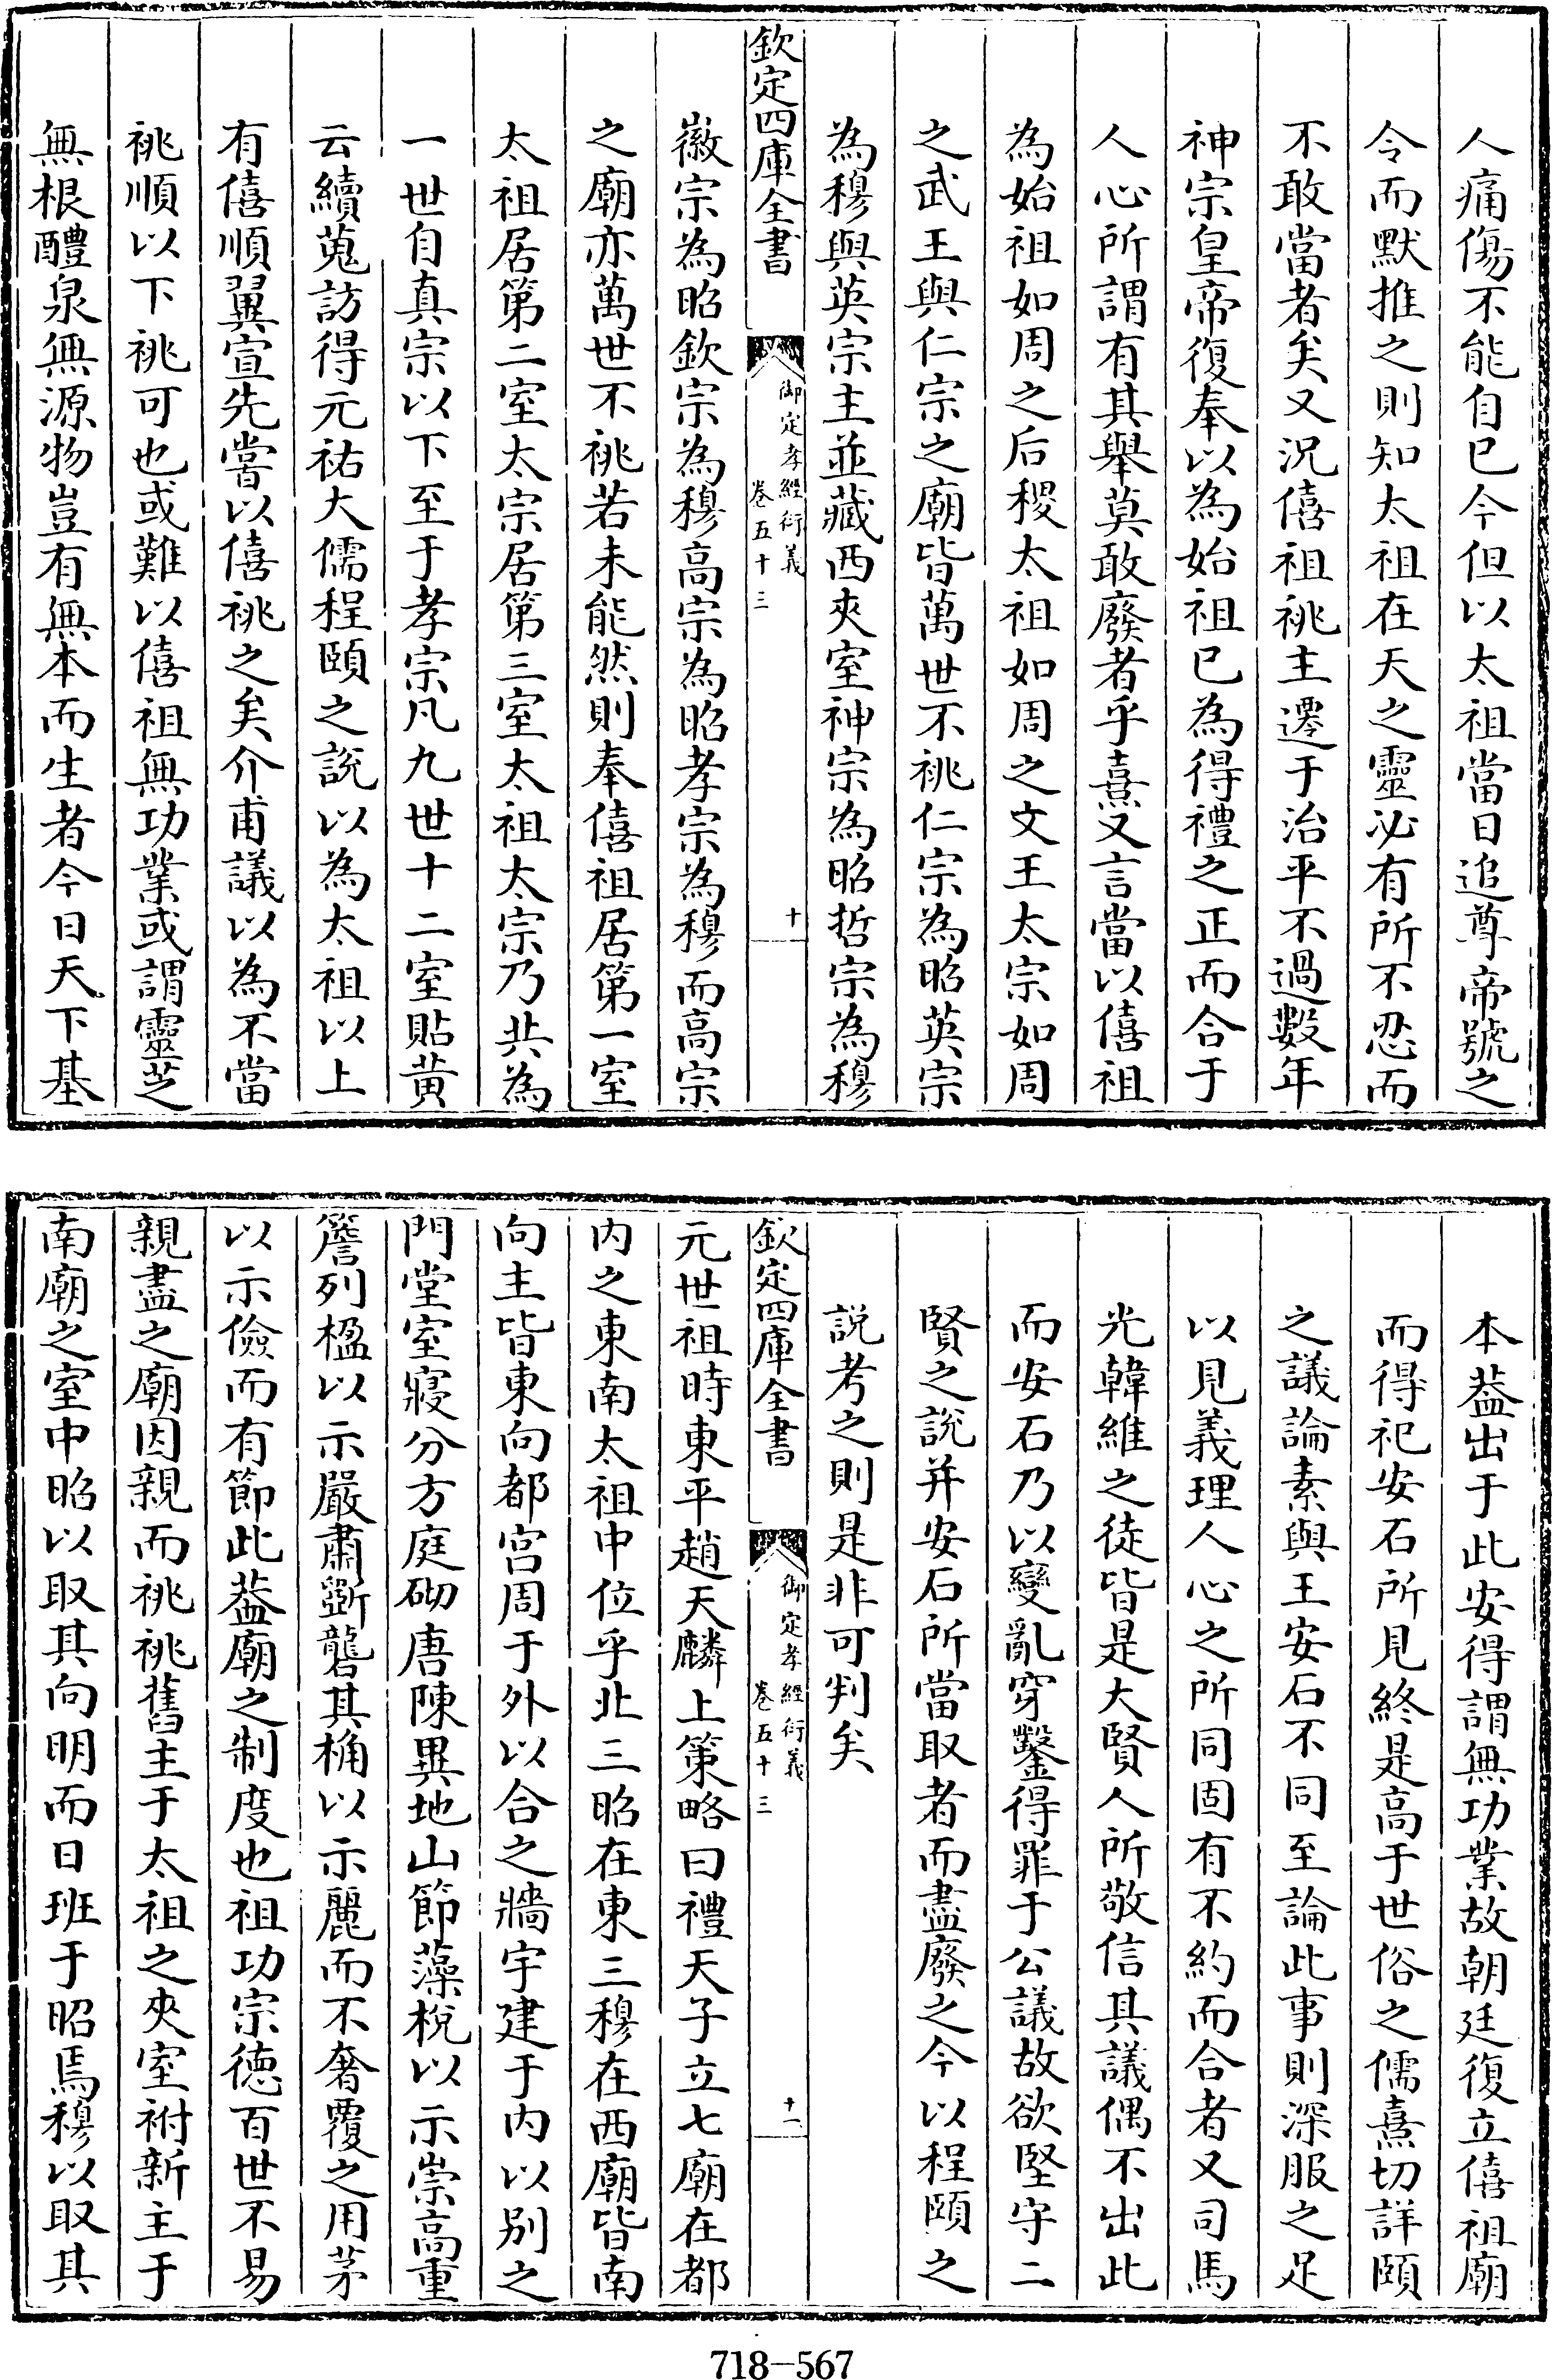 人痛傷不能自已今但以太祖當日追尊帝號之
令而默推之則知太祖在天之靈必有所不忍而
不敢當者矣又況僖祖祧主遷于治平不過數年
神宗皇帝復奉以為始祖已為得禮之正而合于
人心所謂有其舉莫敢廢者乎熹又言當以僖祖
為始祖如周之后稷太祖如周之文王太宗如周
之武王與仁宗之廟皆萬世不祧仁宗為昭英宗
為穆與英宗主並藏西夾室神宗為昭哲宗為穆
欽定四庫全書
御定孝經衍義
卷五十三
十
徽宗為昭欽宗為穆高宗為昭孝宗為穆而高宗
之廟亦萬世不祧若未能然則奉僖祖居第一室
太祖居第二室太宗居第三室太祖太宗乃共為
一世自真宗以下至于孝宗凡九世十二室貼黃
云續蒐訪得元祐大儒程頤之說以為太祖以上
有僖順翼宣先嘗以僖祧之矣介甫議以為不當
祧順以下祧可也或難以僖祖無功業或謂靈芝
無根醴泉無源物豈有無本而生者今日天下基
本葢出于此安得謂無功業故朝廷復立僖祖廟
而得祀安石所見終是高于世俗之儒熹切詳頤
之議論素與王安石不同至論此事則深服之足
以見義理人心之所同固有不約而合者又司馬
光韓維之徒皆是大賢人所敬信其議偶不出此
而安石乃以變亂穿鑿得罪于公議故欲堅守二
賢之說并安石所當取者而盡廢之今以程頤之
說考之則是非可判矣
欽定四庫全書
御定孝經衍義
卷五十三
十一
元世祖時東平趙天麟上策略曰禮天子立七廟在都
內之東南太祖中位乎北三昭在東三穆在西廟皆南
向主皆東向都宮周于外以合之牆宇建于內以別之
門堂室寢分方庭砌唐陳異地山節藻梲以示崇高重
簷列楹以示嚴肅斵礲其桷以示麗而不奢覆之用茅
以示儉而有節此葢廟之制度也祖功宗德百世不易
親盡之廟因親而祧祧舊主于太祖之夾室祔新主于
南廟之室中昭以取其向明而日班于昭焉穆以取其
718－567